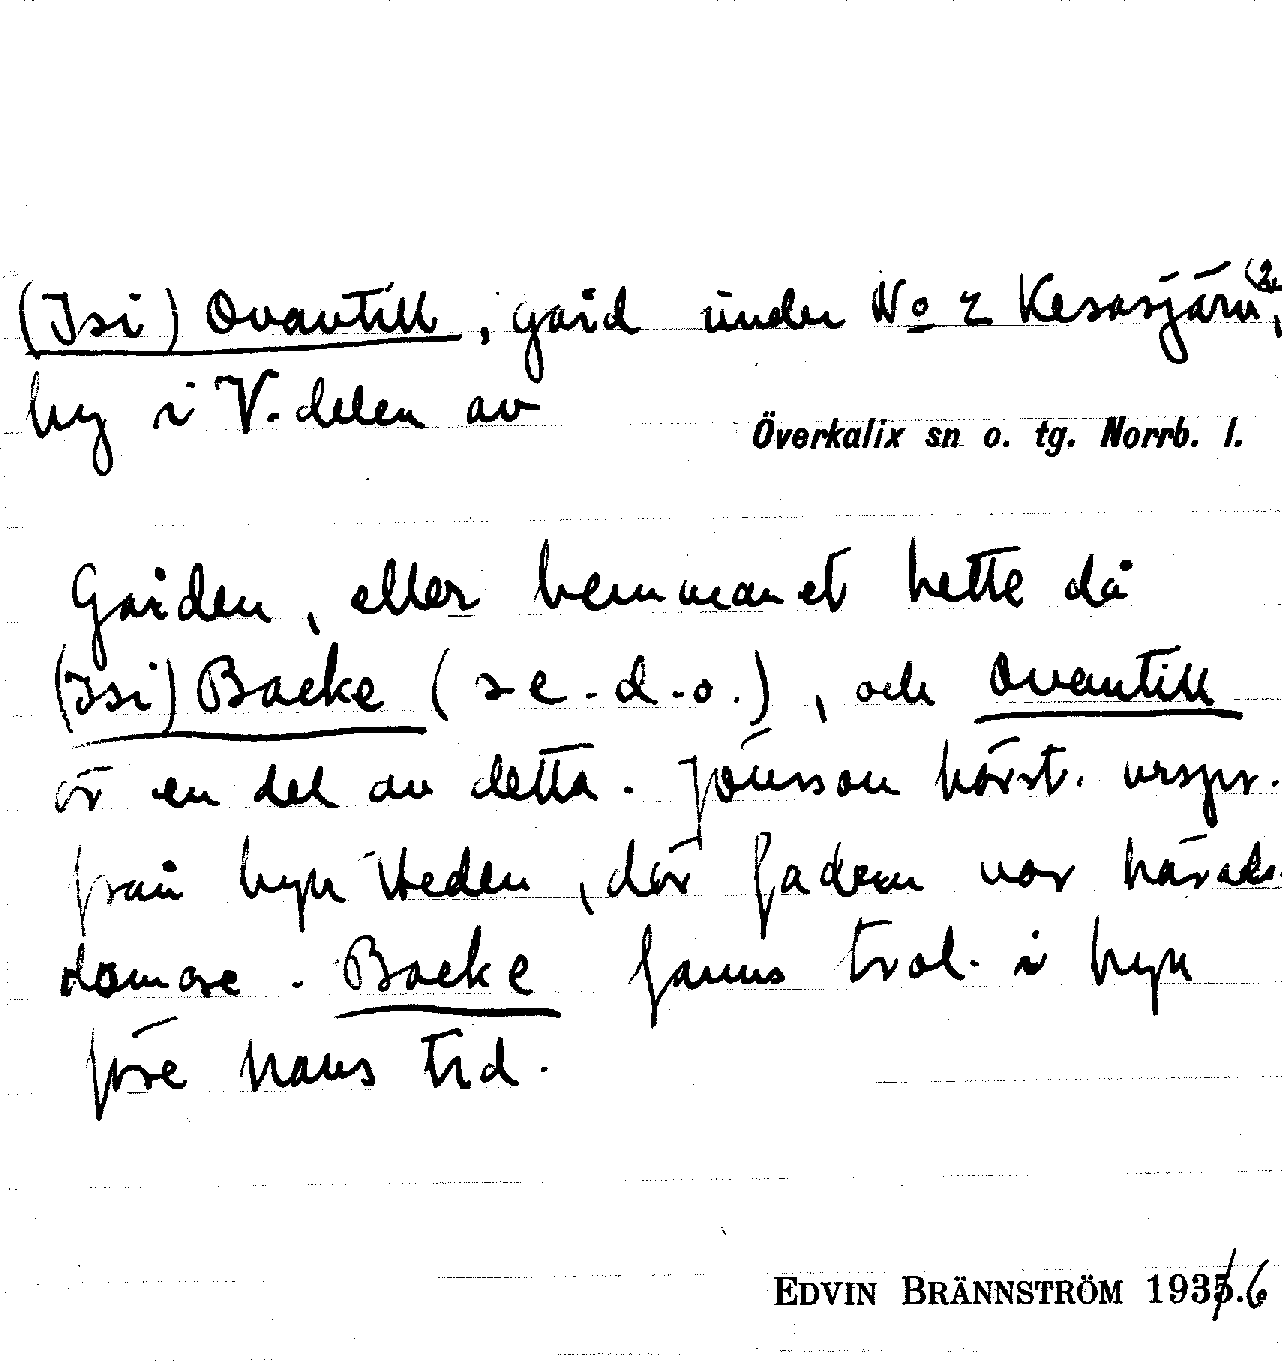 (Isi) Ovantill, gård under No 2 Kesasjärv, (2.
by i V. delen av
Överkalix sn o. tg. Norrb. l.
Gården, eller hemmanet hette då
(Isi) Backe (se. d. o.), och Ovantill
är en del av detta. Jönsson härst. urspr.
från byn Heden, där fadern var härads-
domare. Backe fanns trol. i byn
före hans tid.
EDVIN BRÄNNSTRÖM 1935.6